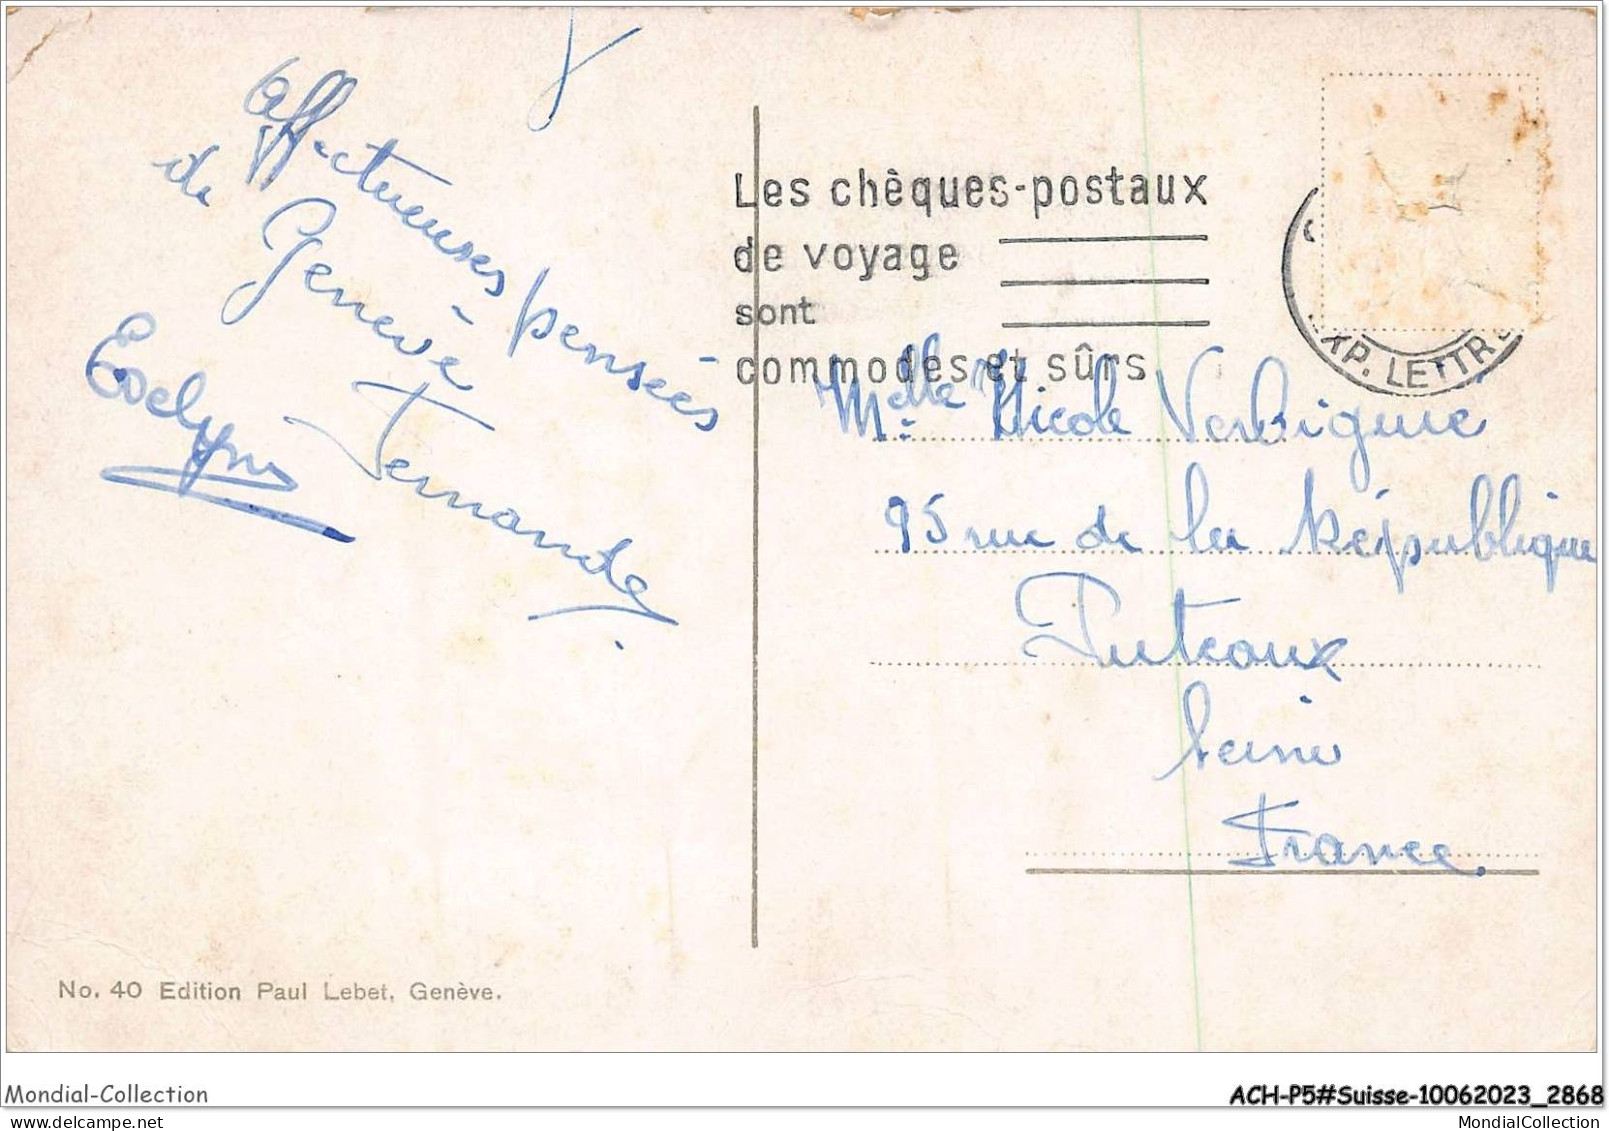 Affectueuses pensées
de Genève
Fernande
Evelyne
Les chèques-postaux
de voyage
sont
commodes et sûrs
XP. LETTRE
Melle Nicole Verbiguié
95 rue de la République
Puteaux
Seine
France.
No. 40 Edition Paul Lebet, Genève.
Mondial-Collection
ACH-P5#Suisse-10062023_2868
mondialcollection
MondialCollection